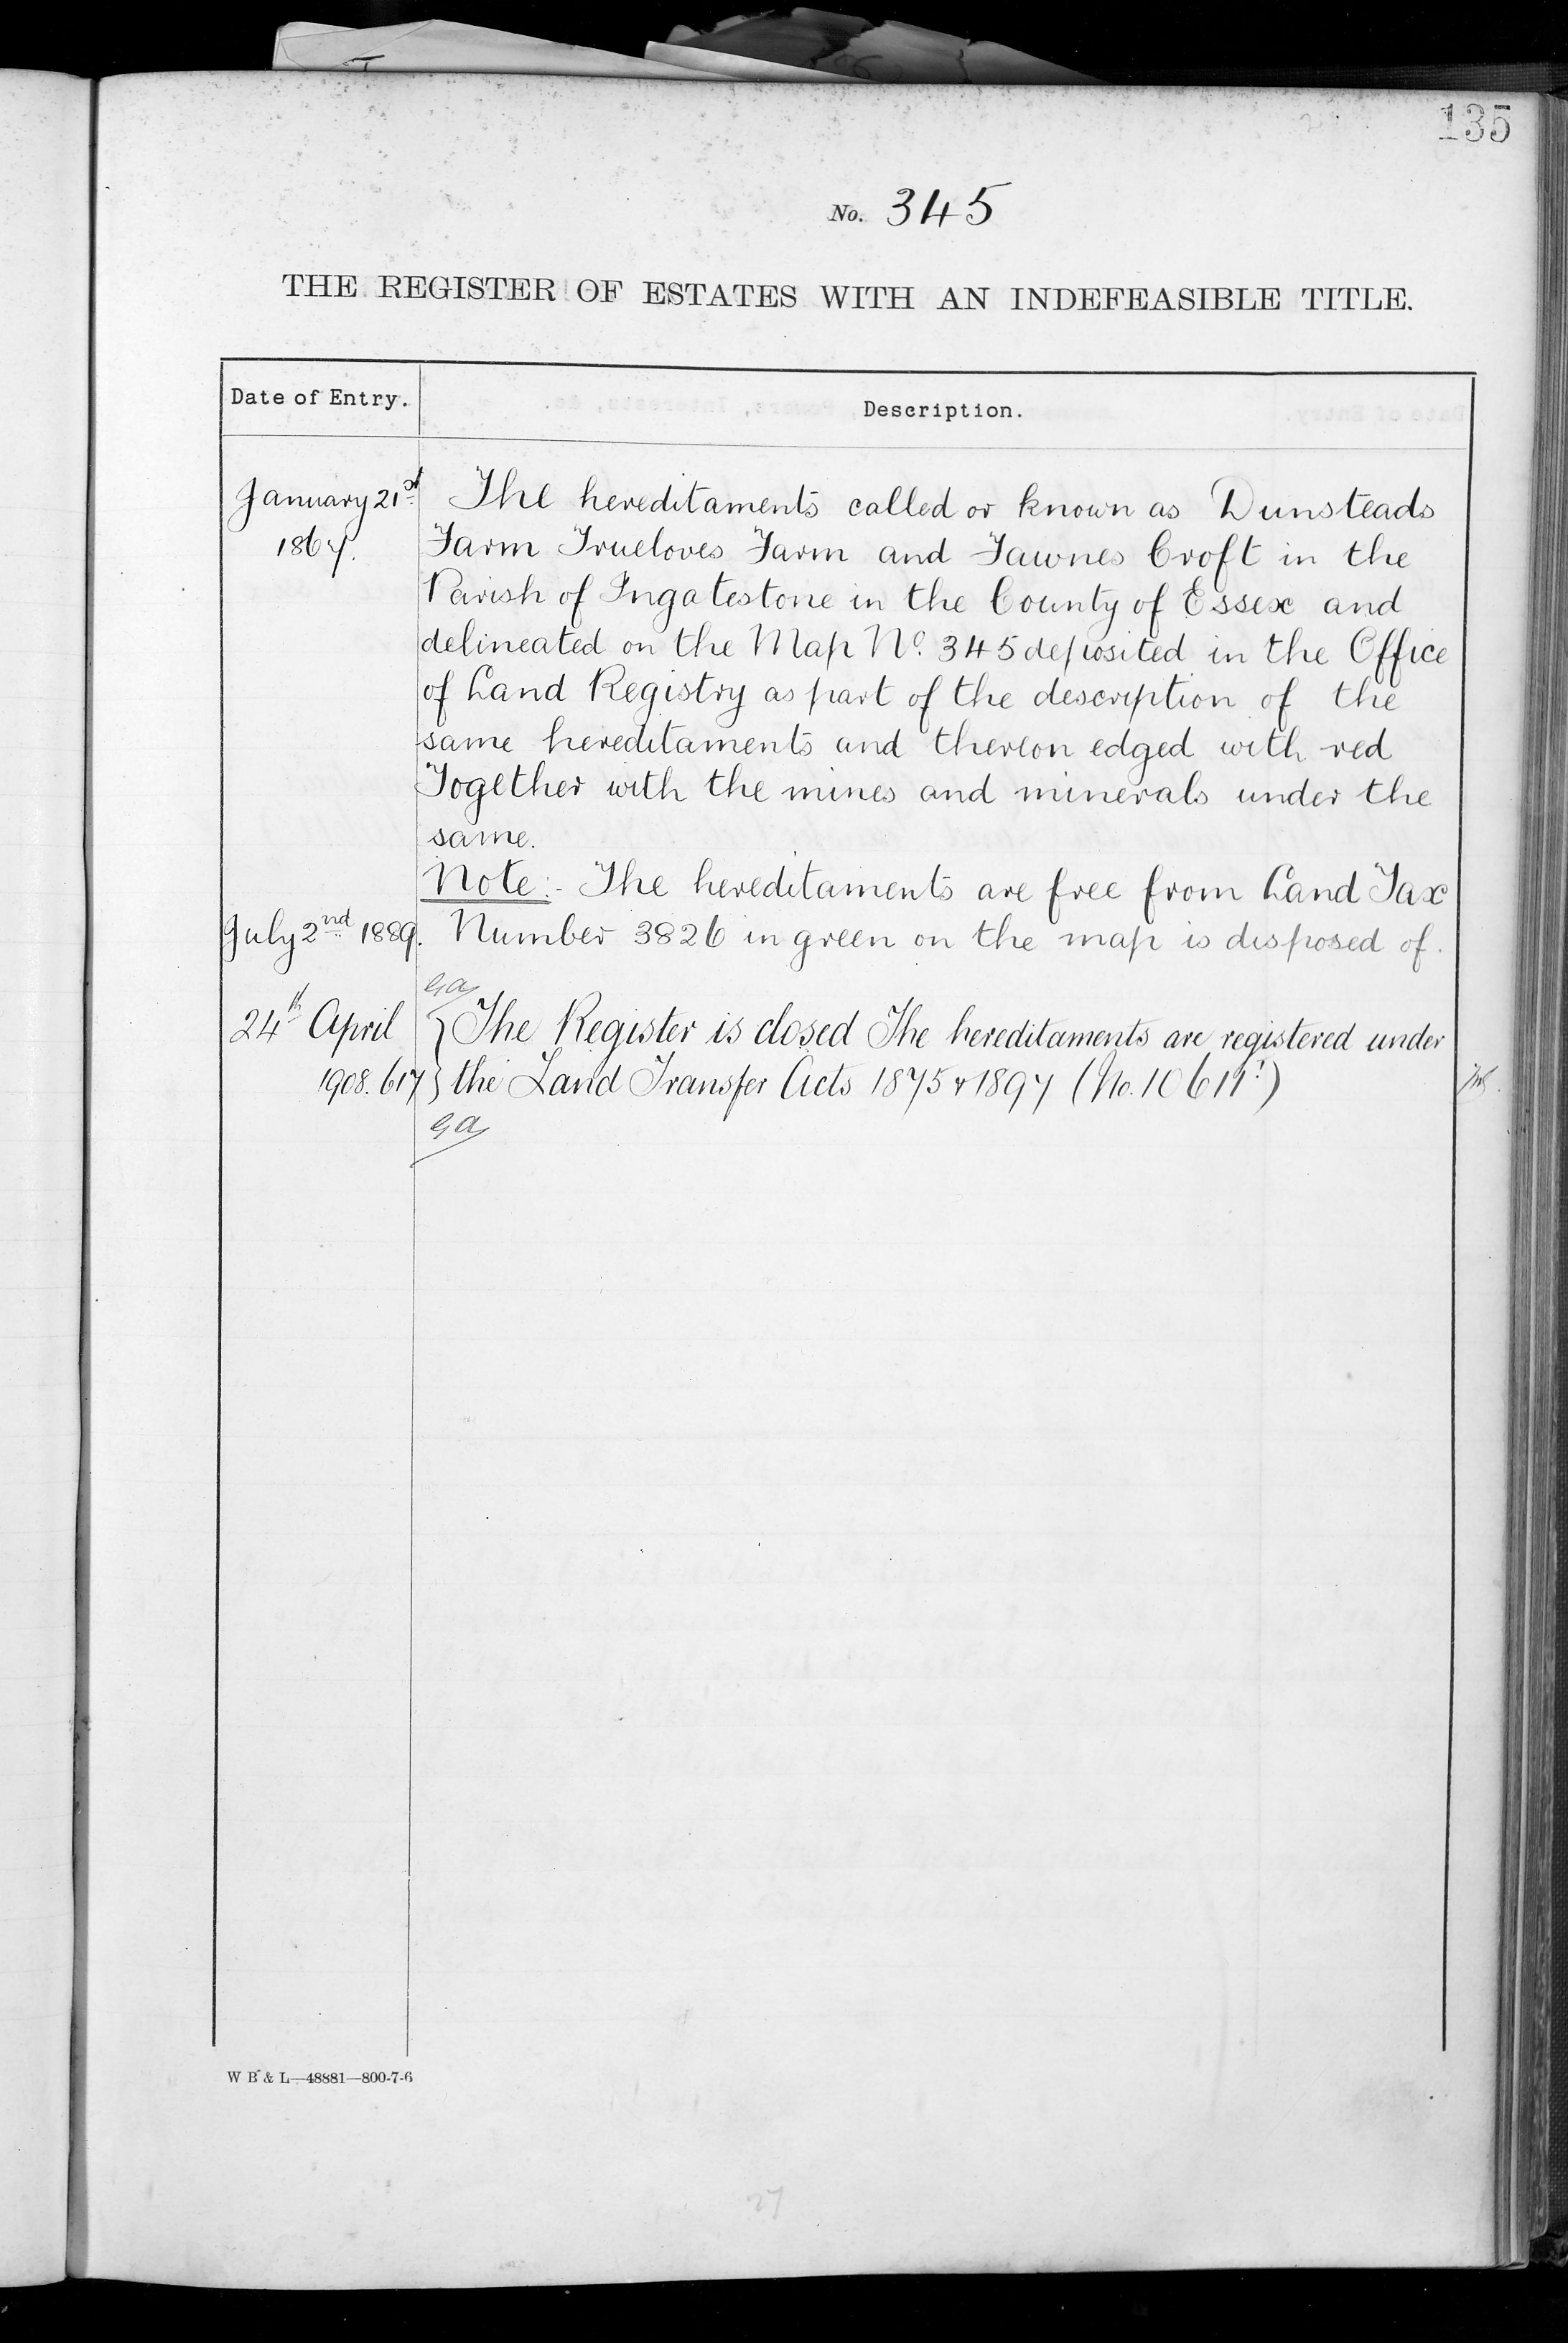 135
No. 345
THE REGISTER OF ESTATES WITH AN INDEFEASIBLE TITLE.
Date of Entry. Description.
January 21st The hereditaments called or known as Dunsteads
1867. Farm Trueloves Farm and Fawnes Croft in the
Parish of Ingatestone in the County of Essex and
delineated on the Map No. 345 deposited in the Office
of Land Registry as part of the description of the
same hereditaments and thereon edged with red
Together with the mines and minerals under the
same.
Note:- The hereditaments are free from Land Tax
July 2nd 1889. Number 3826 in green on the map is disposed of.
24th April The Register is closed The hereditaments are registered under
1908. 617 the Land Transfer Acts 1875 & 1897 (No. 10611)
W B & L—48881—800-7-6
27